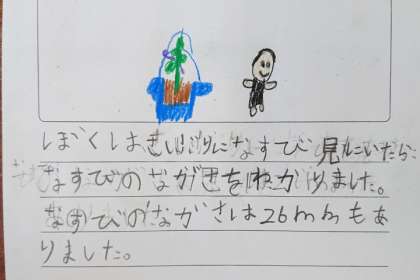 ぼくはさいしょになすび見にいたら
なすびのながさをはかりました。
なすびのながさは26mmもあ
りました。